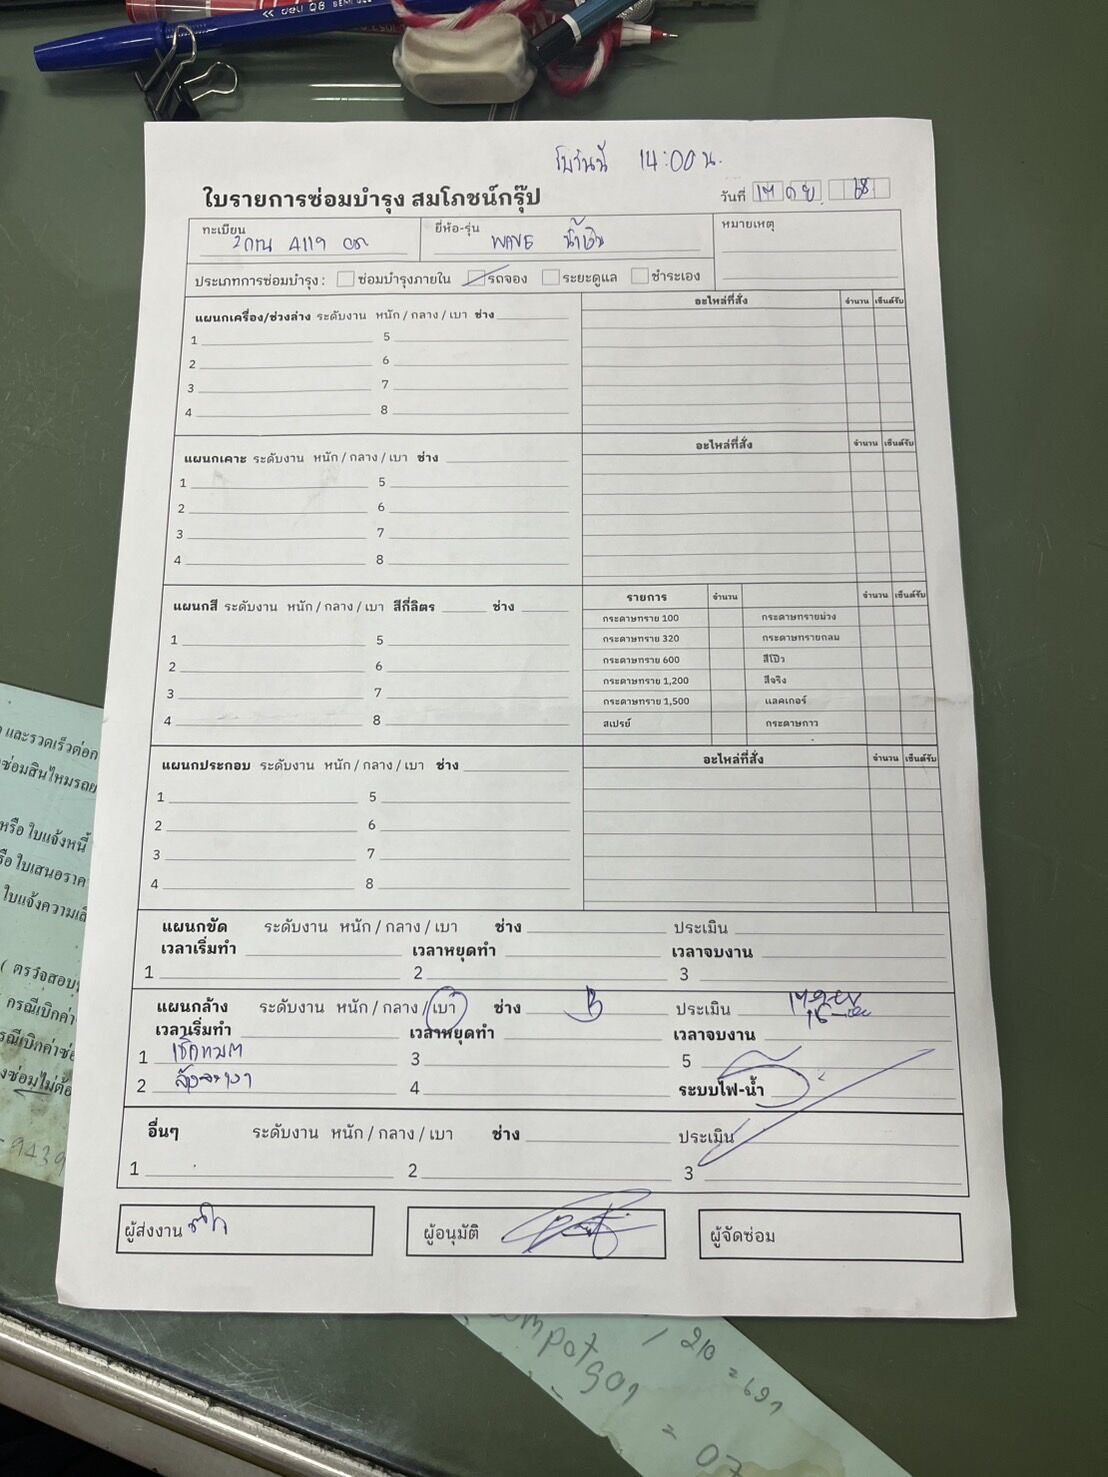 deli
รับวันนี้ 14:00 น.
ใบรายการซ่อมบำรุง สมโภชน์กรุ๊ป
วันที่ 17 ก ย. 68
ทะเบียน 2กน 4119
ยี่ห้อ-รุ่น WAVE น้ำเงิน
หมายเหตุ
ประเภทการซ่อมบำรุง : ซ่อมบำรุงภายใน รถจอง ระยะดูแล ชำระเอง
แผนกเครื่อง/ช่วงล่าง ระดับงาน หนัก / กลาง / เบา ช่าง
อะไหล่ที่สั่ง จำนวน เซ็นต์รับ
1 5
2 6
3 7
4 8
แผนกเคาะ ระดับงาน หนัก / กลาง / เบา ช่าง
อะไหล่ที่สั่ง จำนวน เซ็นต์รับ
1 5
2 6
3 7
4 8
แผนกสี ระดับงาน หนัก / กลาง / เบา สีกี่ลิตร ช่าง
1 5
2 6
3 7
4 8
รายการ จำนวน จำนวน เซ็นต์รับ
กระดาษทราย 100 กระดาษทรายม่วง
กระดาษทราย 320 กระดาษทรายกลม
กระดาษทราย 600 สีโป๊ว
กระดาษทราย 1,200 สีจริง
กระดาษทราย 1,500 แลคเกอร์
สเปรย์ กระดาษกาว
แผนกประกอบ ระดับงาน หนัก / กลาง / เบา ช่าง
อะไหล่ที่สั่ง จำนวน เซ็นต์รับ
1 5
2 6
3 7
4 8
แผนกขัด ระดับงาน หนัก / กลาง / เบา ช่าง ประเมิน
เวลาเริ่มทำ เวลาหยุดทำ เวลาจบงาน
1 2 3
แผนกล้าง ระดับงาน หนัก / กลาง / เบา ช่าง B ประเมิน
เวลาเริ่มทำ เวลาหยุดทำ เวลาจบงาน
1 3 5
2 4 ระบบไฟ-น้ำ
อื่นๆ ระดับงาน หนัก / กลาง / เบา ช่าง ประเมิน
1 2 3
ผู้ส่งงาน
ผู้อนุมัติ
ผู้จัดซ่อม
และรวดเร็วต่อก
ซ่อมสินไหมรถย
หรือ ใบแจ้งหนี้
ใบเสนอราค
ใบแจ้งความเสี
( ตรวจสอบ
กรณีเบิกค่า
รณีเบิกค่าซ่
งซ่อมไม่ต้อ
9439
/ 210 = 691